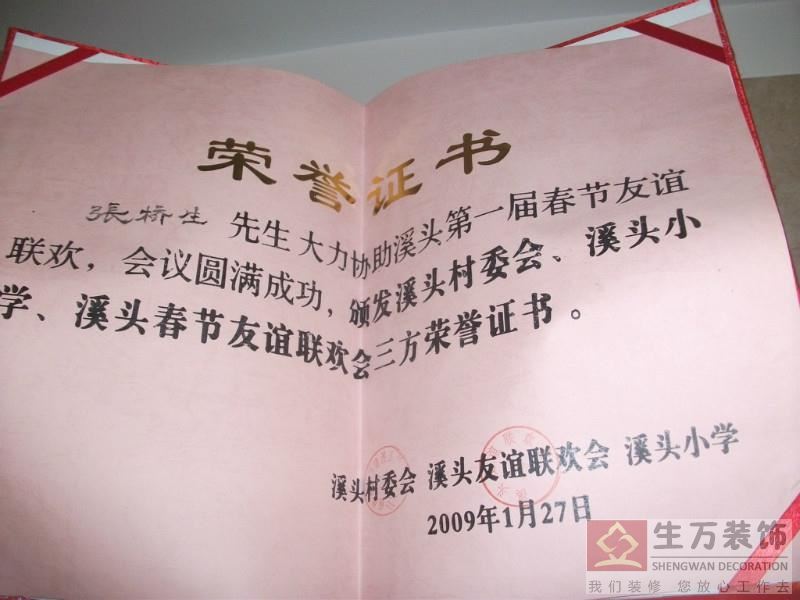 荣誉证书
張桥生 先生大力协助溪头第一届春节友谊
联欢，会议圆满成功，颁发溪头村委会、溪头小
学、溪头春节友谊联欢会三方荣誉证书。
溪头村委会 溪头友谊联欢会 溪头小学
2009年1月27日
生万装饰
SHENGWAN DECORATION
我们装修 您放心工作去